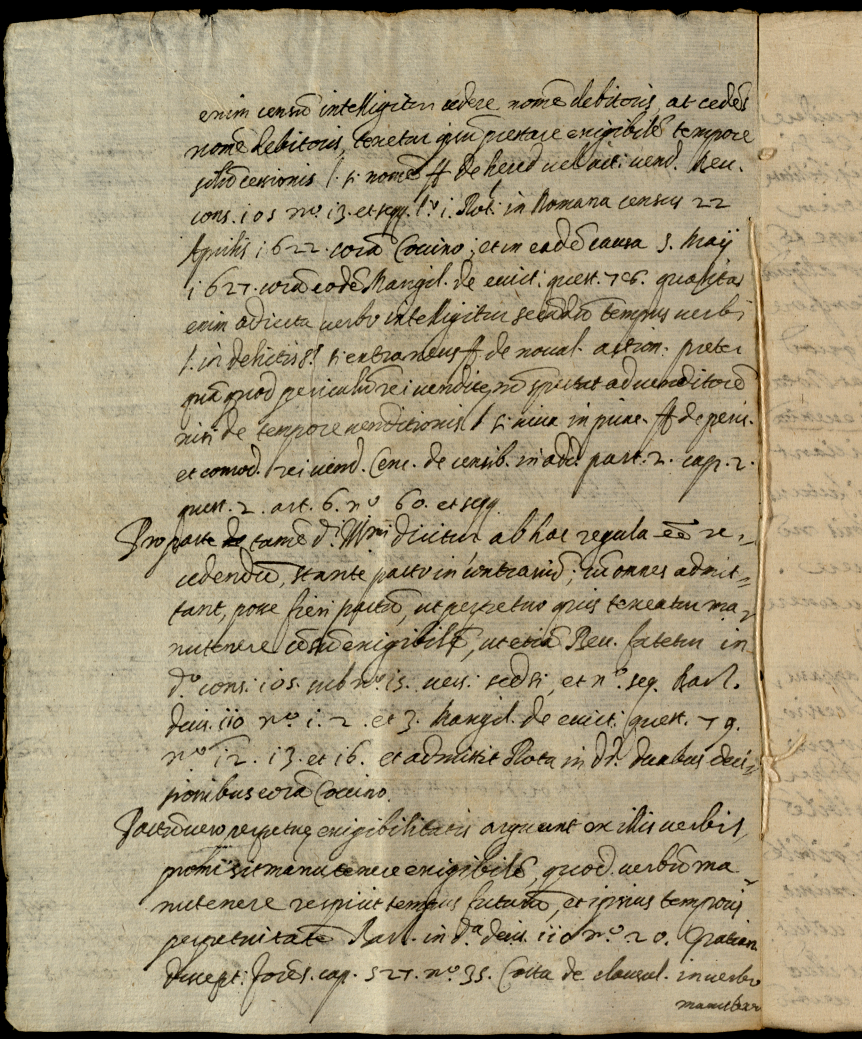 enim censũ intelligitur cedere nomẽ debitoris, at cedẽs
nomẽ debitoris, tenetur ipsũ prestare exigibilẽ tempore
cessionis l. si nomẽ ff de hered. vel act. vend. Beu.
cons. 105 nº. 13. et seqq. Rot. in Romana census 22
Aprilis 1622. corã Coccino; et in eadẽ causa 5. Maij
1627. corã eodẽ Mangil. de evict. quest. 76. qualitas
enim adiecta verbo intelligitur secundũ tempus verbi
l. in delictis §. si extraneus ff. de noxal. action. preter
quã quod periculũ rei vendite nõ spectat ad venditorẽ
nisi de tempore venditionis l. in princ. ff de peric.
et comod. rei vend. Cenc. de censib. in add. part. 2. cap. 2.
quest. 2. art. 6. nº 60. et seqq.
Pro parte tamẽ d. dicitur ab hac regula eẽ re-
cedendũ, stante pacto in contrariũ; cũ omnes admit-
tant, posse fieri pactũ, ut perpetuo quis teneatur ma-
nutenere cẽsũ exigibilẽ, ut etiã Beu. fatetur in
d.º cons. 105. sub nº. 15. vers. sed si, et nº. seq.
decis. 110 nº. 1. 2. et 3. Mangil. de evict. quest. 79.
nº 12. 13. et 16. et admittit Rota in dd. duabus deci-
sionibus corã Coccino.
Pactũ vero perpetuę exigibilitatis arguunt ex illis verbis,
promisit manutenere exigibilẽ, quod verbũ ma-
nutenere respicit tempus futurũ, et ipsius temporis
perpetuitatẽ in d.ª decis. 110 nº. 20. Gratian.
discept. forẽs. cap. 527. nº. 35. Costa de clausul. in verbo